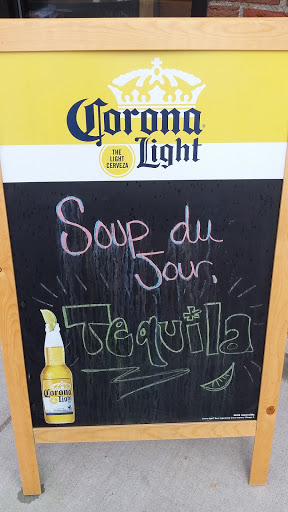 Corona
Light
THE
LIGHT
CERVEZA
Soup du
Jour.
Tequila
Corona
Light